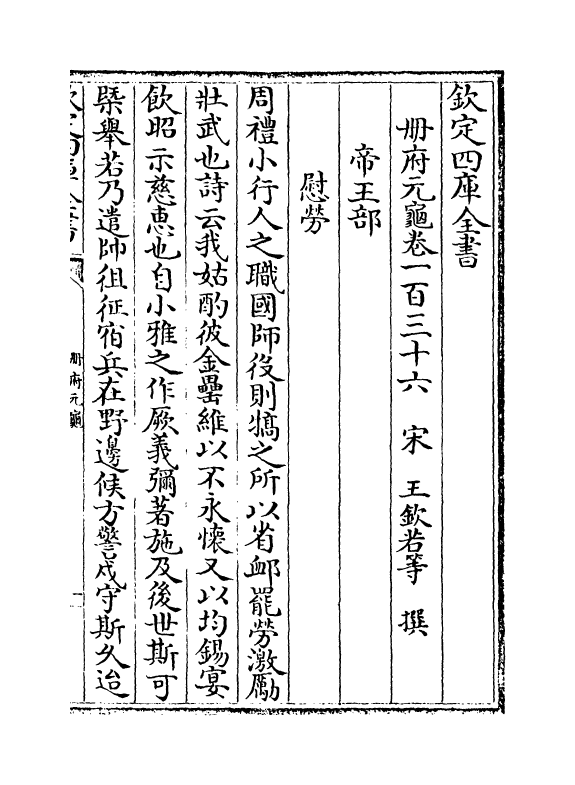 欽定四庫全書
冊府元龜卷一百三十六　宋　王欽若等　撰
帝王部
慰勞
周禮小行人之職國師役則犒之所以省䘏罷勞激勵
壯武也詩云我姑酌彼金罍維以不永懷又以均錫宴
飲昭示慈惠也自小雅之作厥義彌著施及後世斯可
槩舉若乃遣師徂征宿兵在野邊候方警戍守斯久迨
冊府元龜